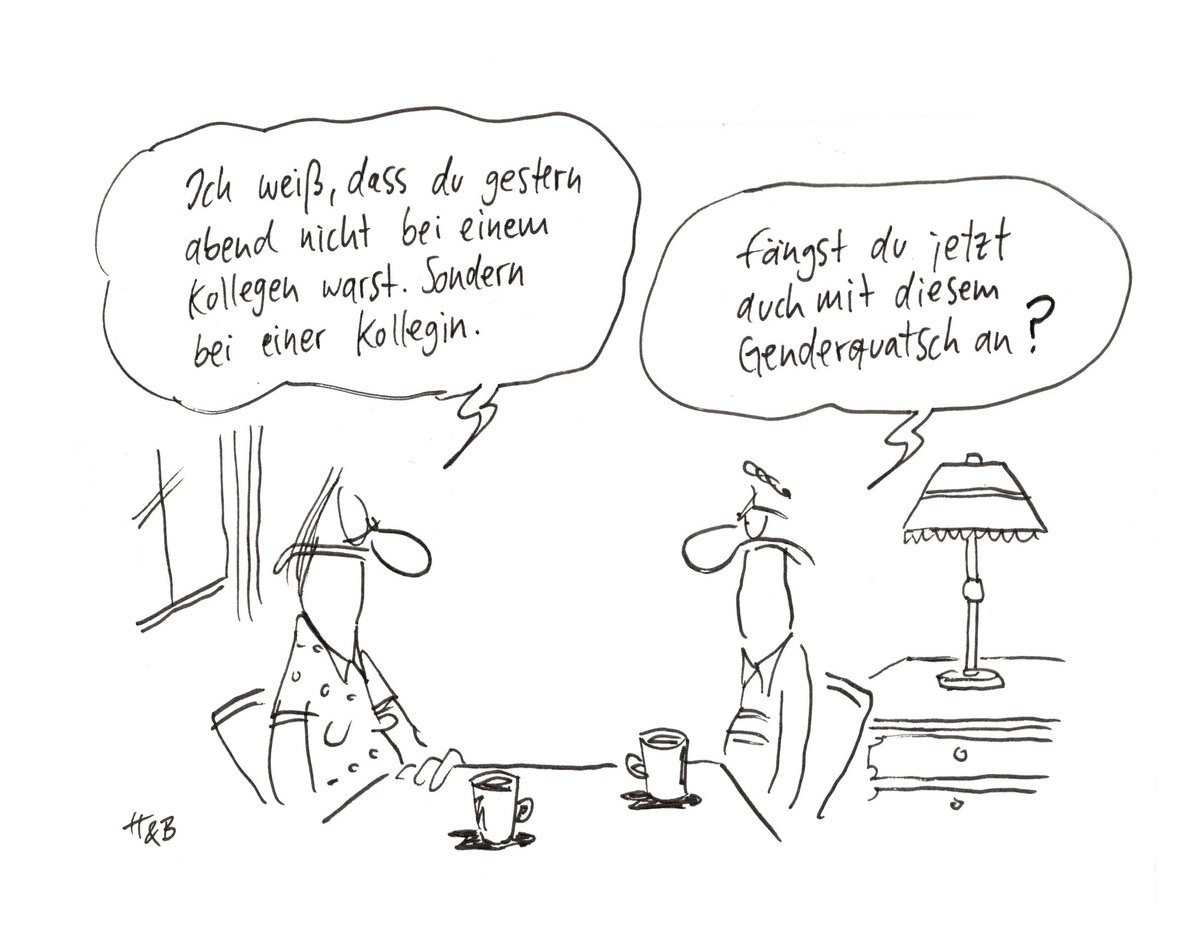 Ich weiß, dass du gestern
abend nicht bei einem
Kollegen warst. Sondern
bei einer Kollegin.
Fängst du jetzt
auch mit diesem
Genderquatsch an?
H&B